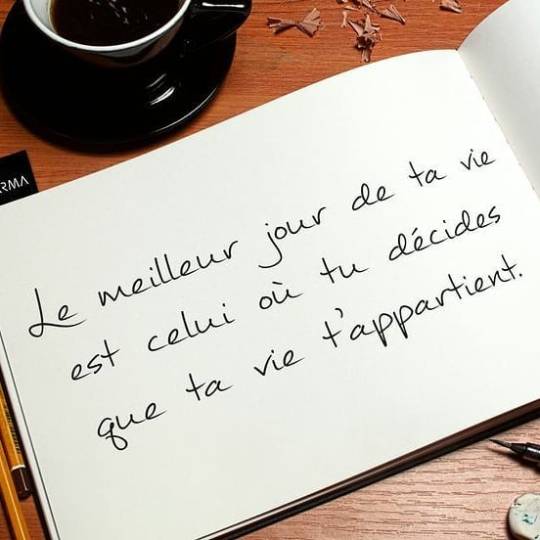 RMA
Le meilleur jour de ta vie
est celui où tu décides
que ta vie t'appartient.